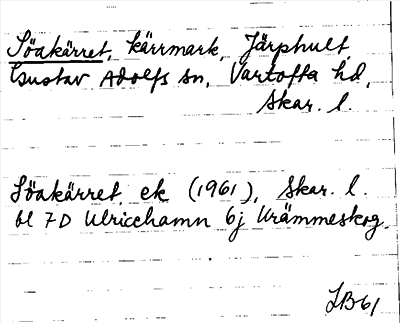 Söakärret, kärrmark, Järphult
Gustav Adolfs sn, Vartofta hd,
Skar. l.
Söakärret, ek (1961), Skar. l.
bl 7D Ulricehamn 6j Krämmeskog.
LB61